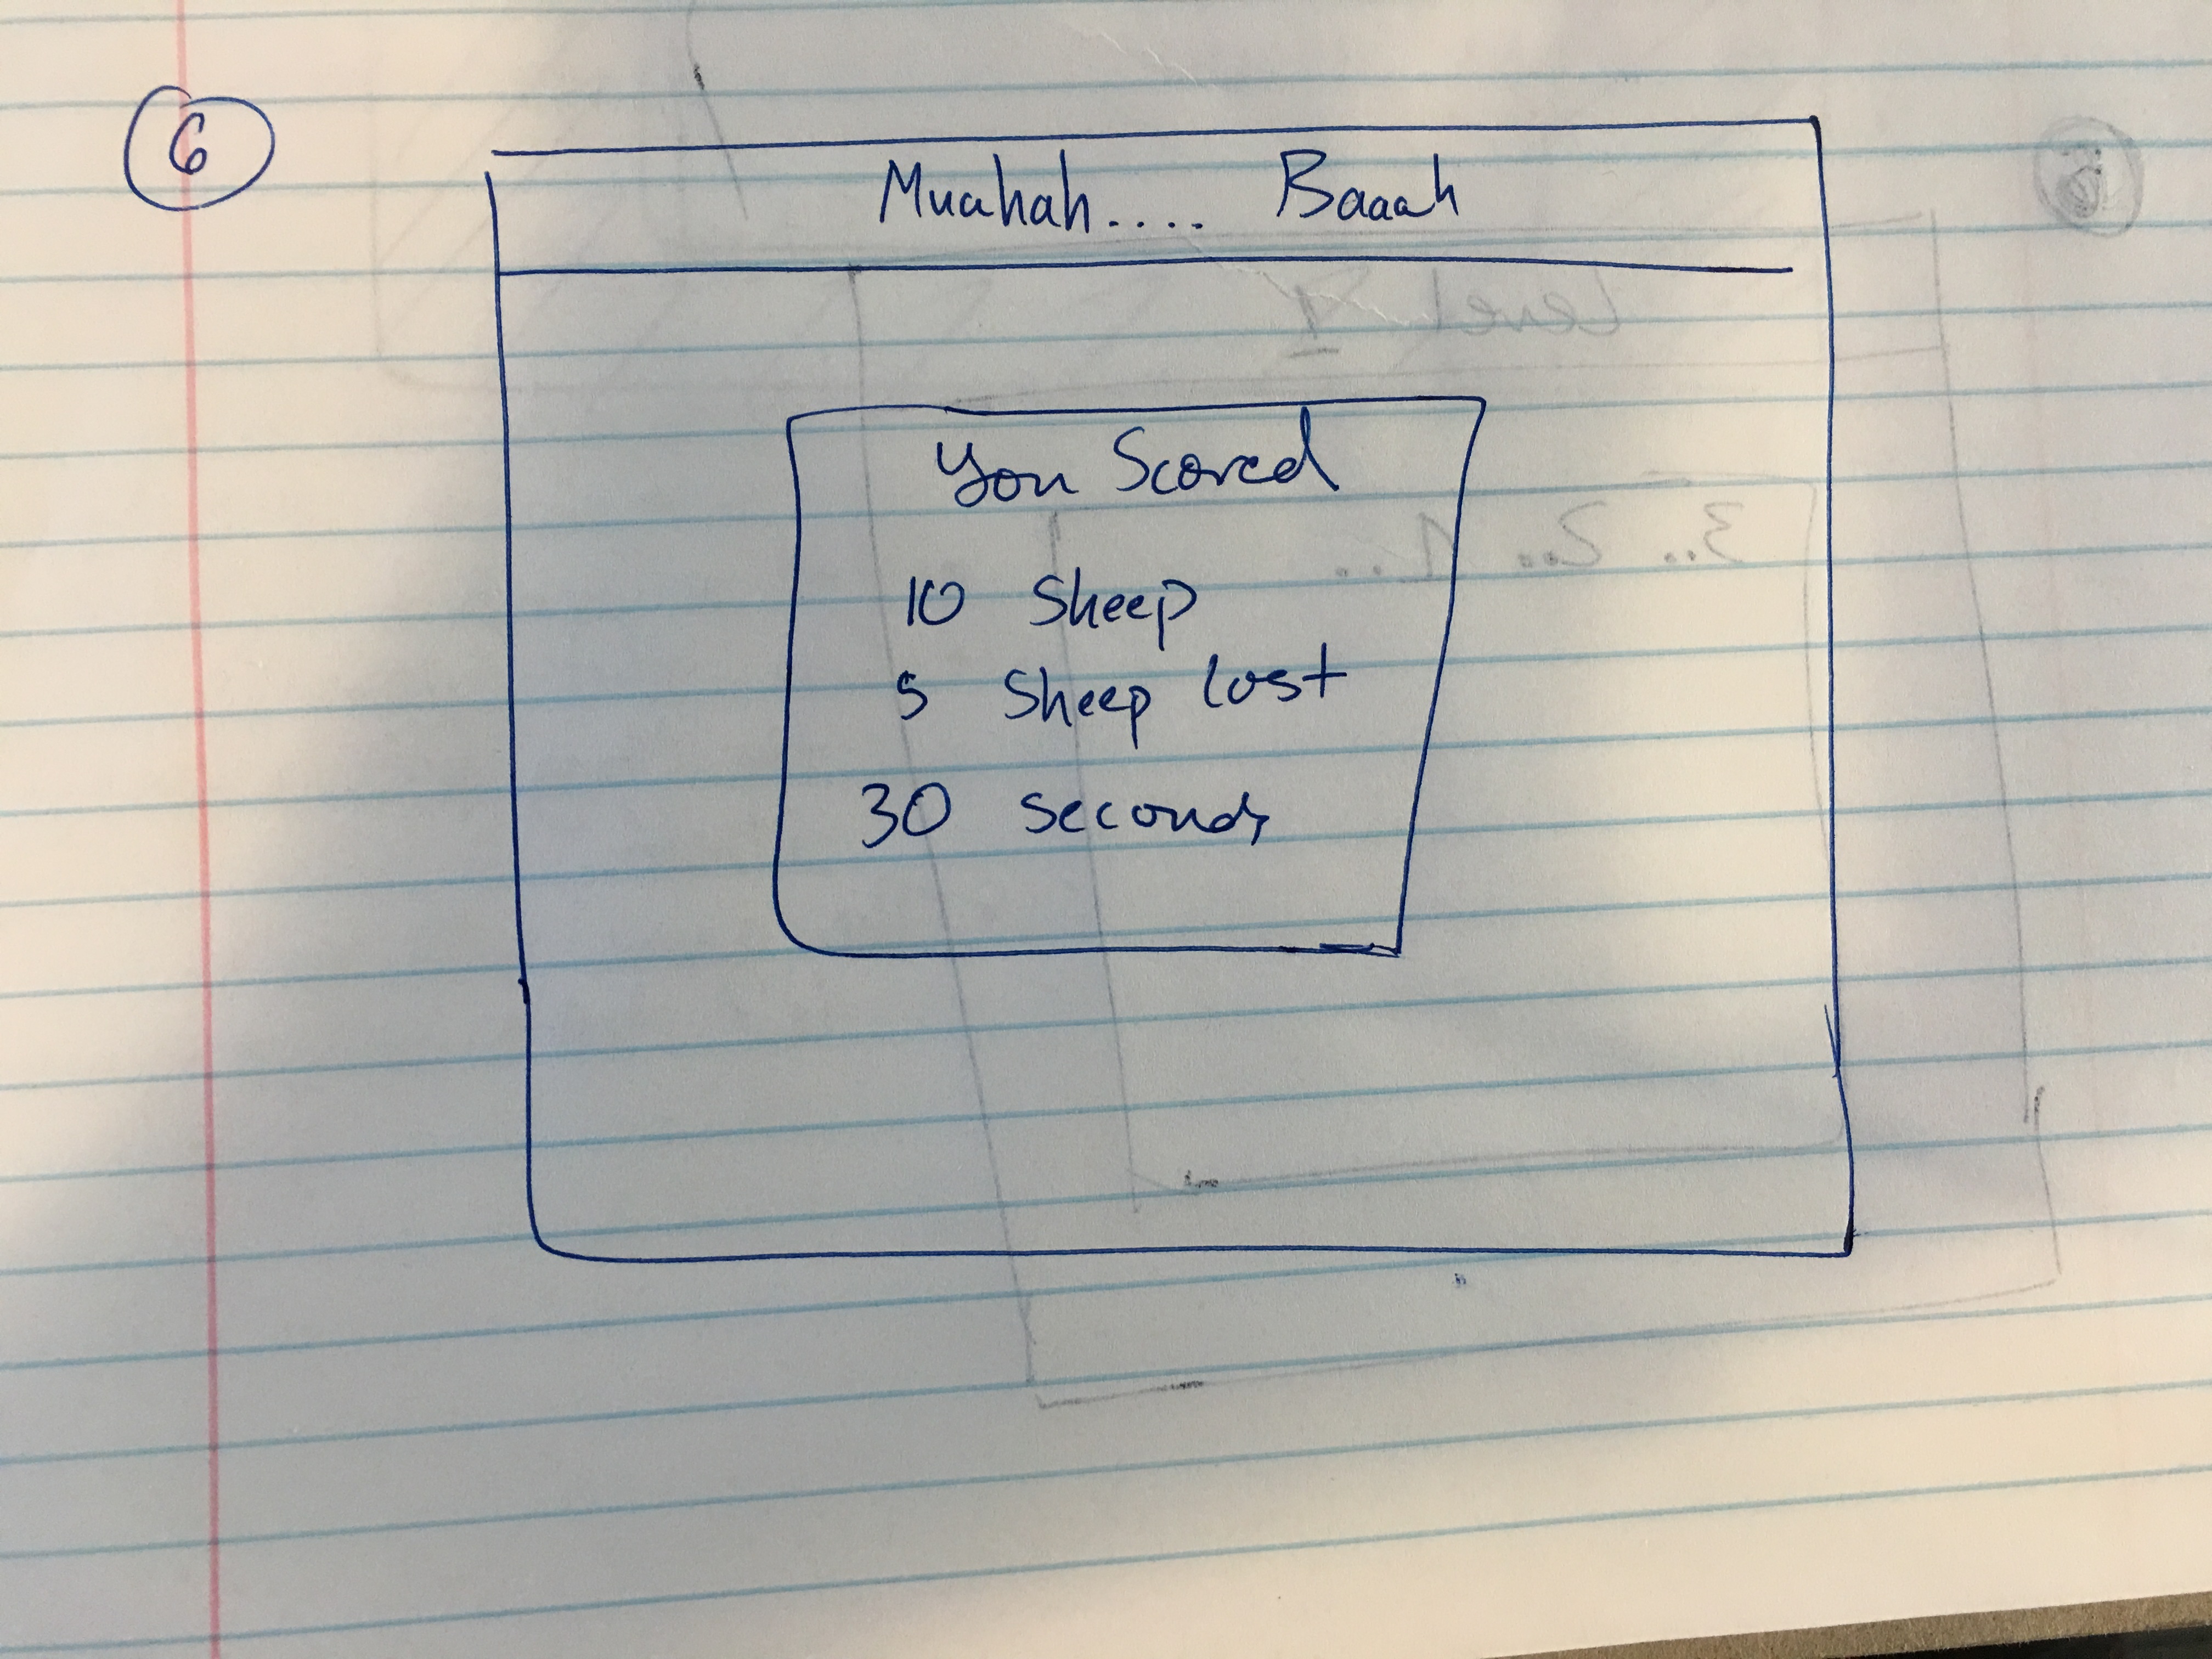 6
Muahah.... Baaah
You Scored
10 Sheep
5 Sheep lost
30 seconds